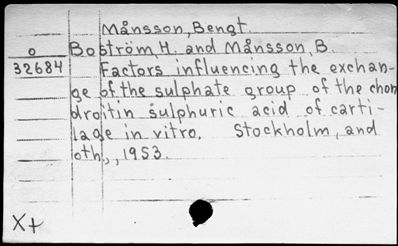 Månsson, Bengt.
o Boström, H. and Månsson, B.
32684 Factors influencing the exchan-
ge of the sulphate group of the chon
droitin sulphuric acid of carti-
lage in vitro. Stockholm, and
oth., 1953.
X+